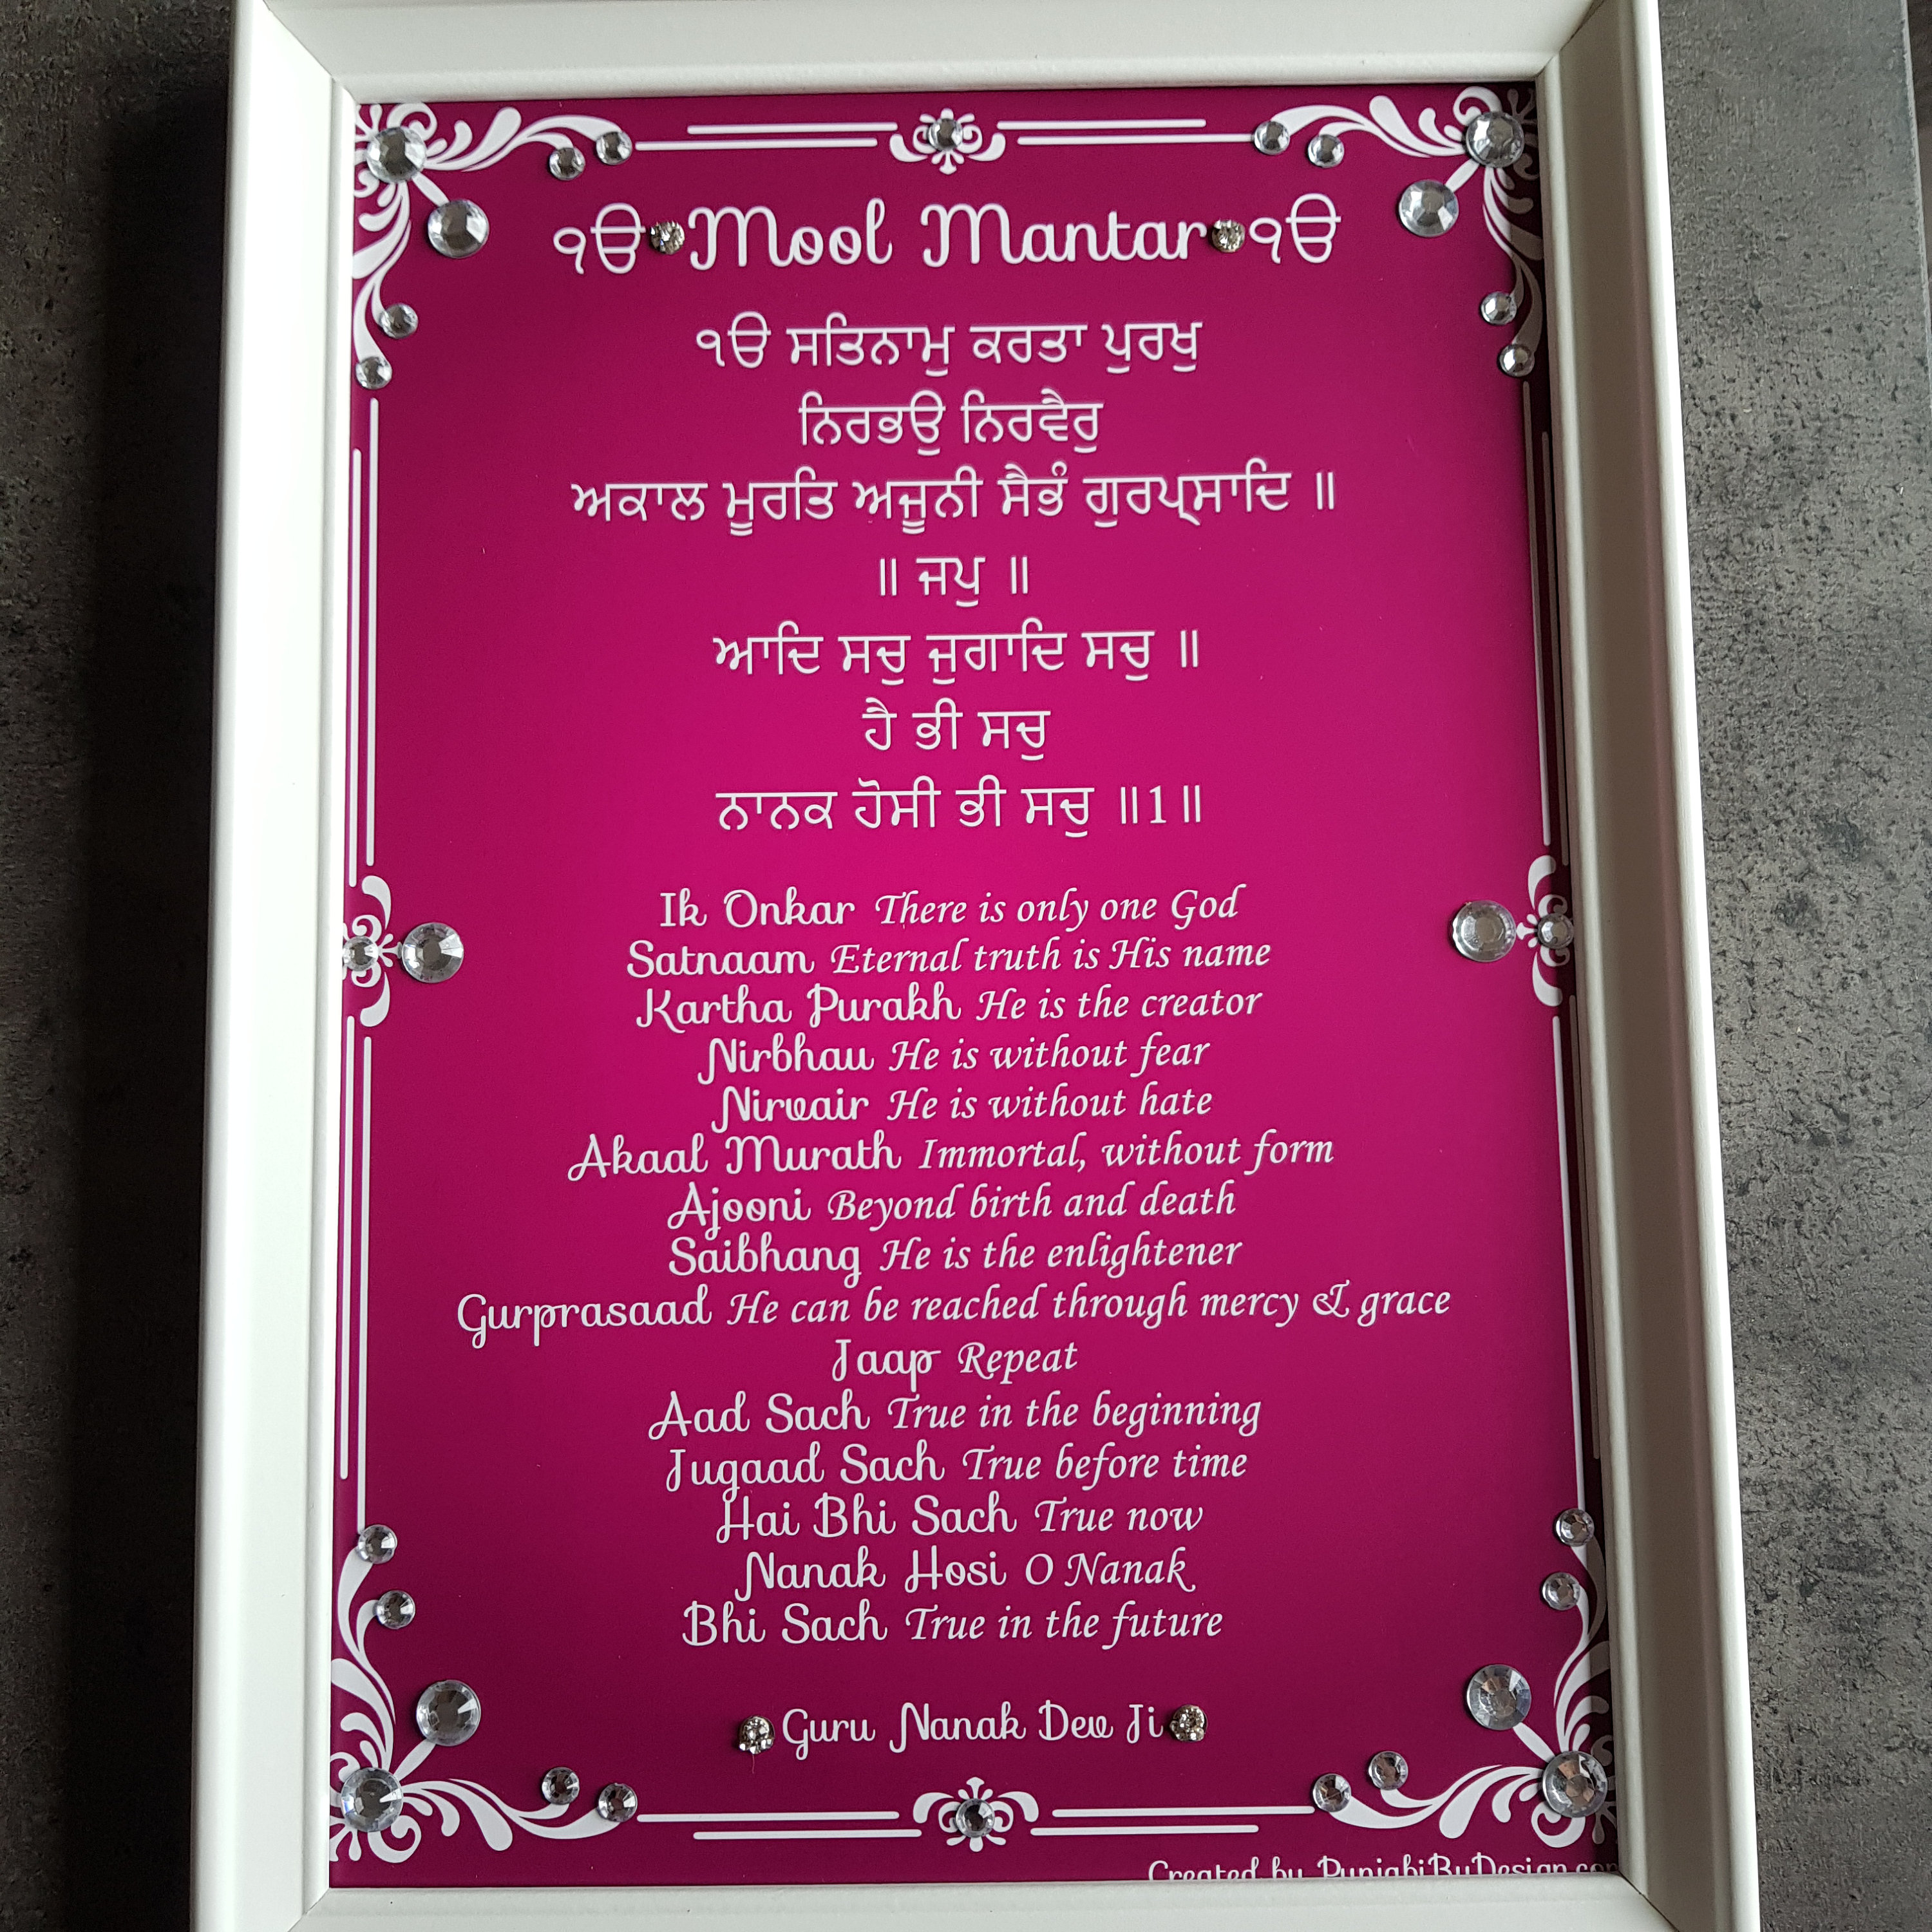 ੴ Mool Mantar ੴ
ੴ ਸਤਿਨਾਮੁ ਕਰਤਾ ਪੁਰਖੁ
ਨਿਰਭਉ ਨਿਰਵੈਰੁ
ਅਕਾਲ ਮੂਰਤਿ ਅਜੂਨੀ ਸੈਭੰ ਗੁਰਪ੍ਰਸਾਦਿ ॥
॥ ਜਪੁ ॥
ਆਦਿ ਸਚੁ ਜੁਗਾਦਿ ਸਚੁ ॥
ਹੈ ਭੀ ਸਚੁ
ਨਾਨਕ ਹੋਸੀ ਭੀ ਸਚੁ ॥1॥
Ik Onkar There is only one God
Satnaam Eternal truth is His name
Kartha Purakh He is the creator
Nirbhau He is without fear
Nirvair He is without hate
Akaal Murath Immortal, without form
Ajooni Beyond birth and death
Saibhang He is the enlightener
Gurprasaad He can be reached through mercy & grace
Jaap Repeat
Aad Sach True in the beginning
Jugaad Sach True before time
Hai Bhi Sach True now
Nanak Hosi O Nanak
Bhi Sach True in the future
Guru Nanak Dev Ji
Created by PunjabiByDesign.com